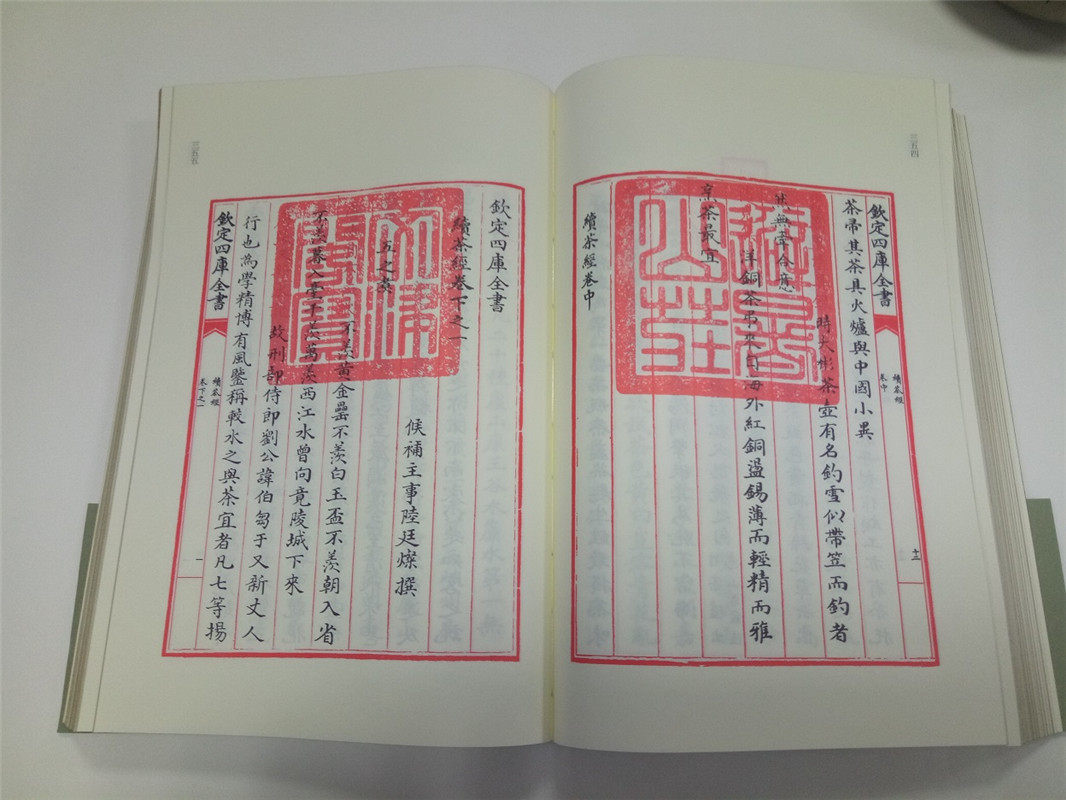 三五四
欽定四庫全書
續茶經
卷中
茶帚其茶具火爐與中國小異
時大彬茶壺有名釣雪似帶笠而釣者
然無牽合意
洋銅茶弔來自海外紅銅盪錫薄而輕精而雅
烹茶最宜
續茶經卷中
避暑
山莊
三五五
欽定四庫全書
續茶經卷下之一
候補主事陸廷燦撰
五之煮
不羨黃金罍不羨白玉盃不羨朝入省
不羨暮入臺千羨萬羨西江水曾向竟陵城下來
故刑部侍郎劉公諱伯芻于又新丈人
行也為學精博有風鑒稱較水之與茶宜者凡七等揚
欽定四庫全書
續茶經
卷下之一
一
文津
閣寶